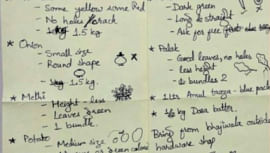 - Some yellow some Red
- No holes / crack
- 1.5 kg
* Onion
- Small size
- Round shape
- 1.5 kg
* Methi
- Height - less
- Leaves green
- 1 bundle
* Potato - Medium size
- Dark green
- Long & straight
- Ask for free
* Palak
- Good leaves, no holes
- less height
- bundles 2
* 1 ltr Amul taaza - blue pack
* ½ kg Dosa batter
Bring from bhajiwala outside
hardware shop